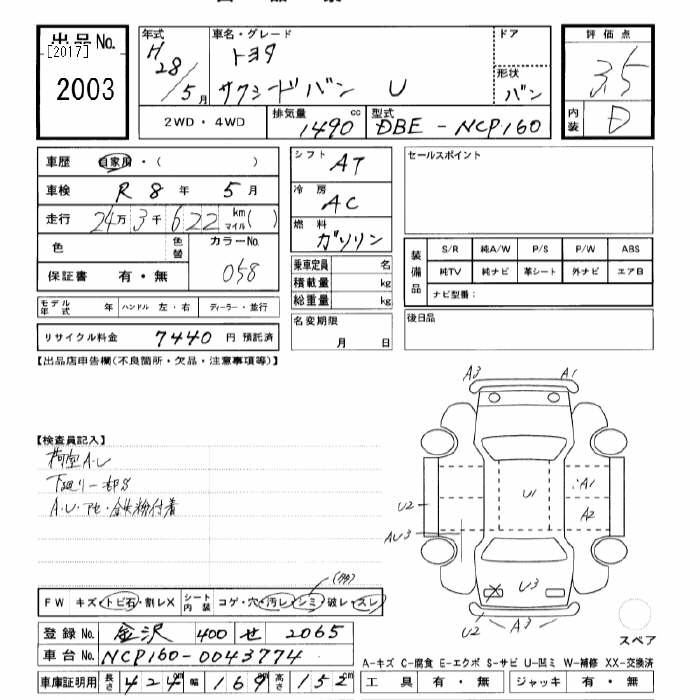 出品No.
[2017]
2003
年式
H28/5月
車名・グレード
トヨタ
サクシードバン U
ドア
形状
バン
評価点
3.5
内装
D
2WD・4WD
排気量
1490 cc
型式
DBE-NCP160
車歴 自家用・( )
車検 R 8年 5月
走行 24万3千622 km マイル( )
色 色替 カラーNo.
058
保証書 有・無
モデル年式 年 ハンドル 左・右 ディーラー・並行
リサイクル料金 7440 円 預託済
シフト AT
冷房 AC
燃料 ガソリン
乗車定員 名
積載量 kg
総重量 kg
名変期限
月 日
セールスポイント
装備品
S/R 純A/W P/S P/W ABS
純TV 純ナビ 革シート 外ナビ エアB
ナビ型番:
後日品
【出品店申告欄(不良箇所・欠品・注意事項等)】
【検査員記入】
荷室A・U
下廻り一部S
A・U・アセ・鉄粉付着
A3 A1
U1
A1
A2
U2
AU3
U3
U2 A3
スペア
FW キズ・トビ石・割レX シート内装 コゲ・穴・汚レ・シミ・破レ・スレ
登録No. 金沢 400 せ 2065
車台No. NCP160-0043774
車庫証明用 長さ 424cm 幅 169cm 高さ 152cm
A-キズ C-腐食 E-エクボ S-サビ U-凹ミ W-補修 XX-交換済
工具 有・無 ジャッキ 有・無